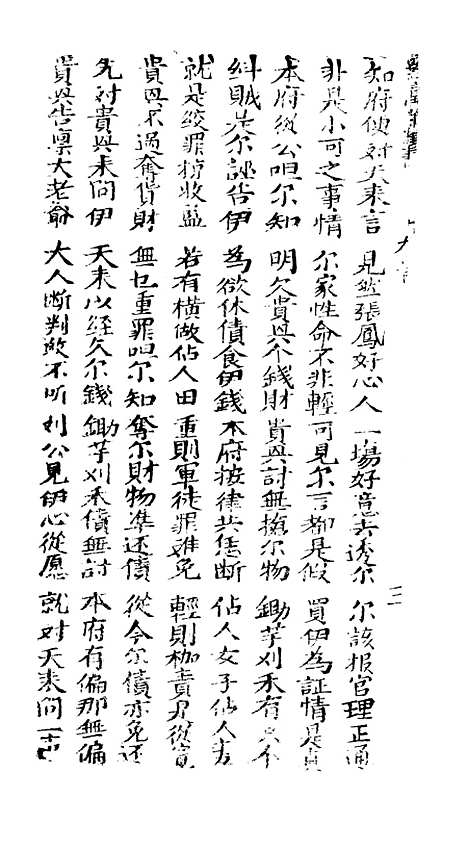 知府便对天來言 見些張鳳好心人 一場好意去透尔 尔該报官理正通
非是小可之事情 尔家性命不非輕 可見尔言都是假 買伊為証情是真
本府從公呾尔知 明欠貴興个錢財 貴興討無搶尔物 鋤芋刈禾有只个
糾賊是尔誣告伊 為欲休債食伊錢 本府按律共恁断 佔人女子佔人
就是絞罪收监 若有橫做佔人田 重則軍徒罪难免 輕則枷責從寛
貴興不過奪貨財 無乜重罪呾尔知 奪尔財物準还債 從今尔債亦免还
先对貴興來问伊 天來以经欠尔錢 鋤芋刈禾債無討 本府有偏那無偏
貴興告禀大老爺 大人断判敢不听 刘公見伊心從愿 就对天來问一声
三